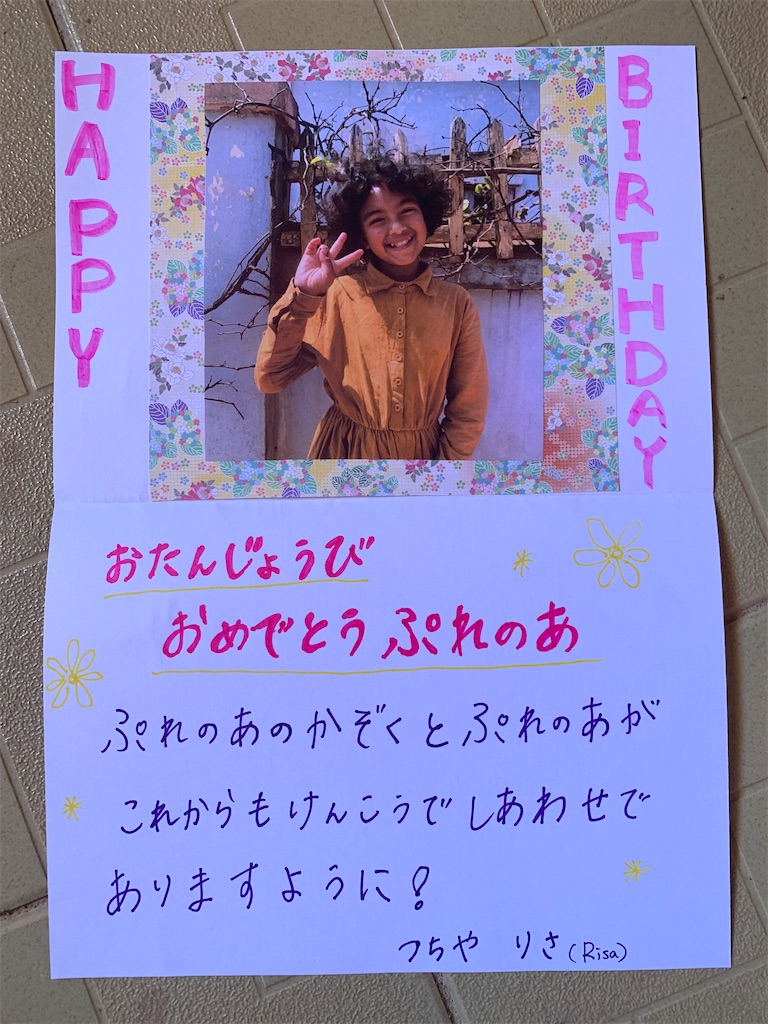 HAPPY
BIRTHDAY
おたんじょうび
おめでとう ぷれのあ
ぷれのあのかぞくとぷれのあが
これからもけんこうでしあわせで
ありますように!
つちや りさ(Risa)